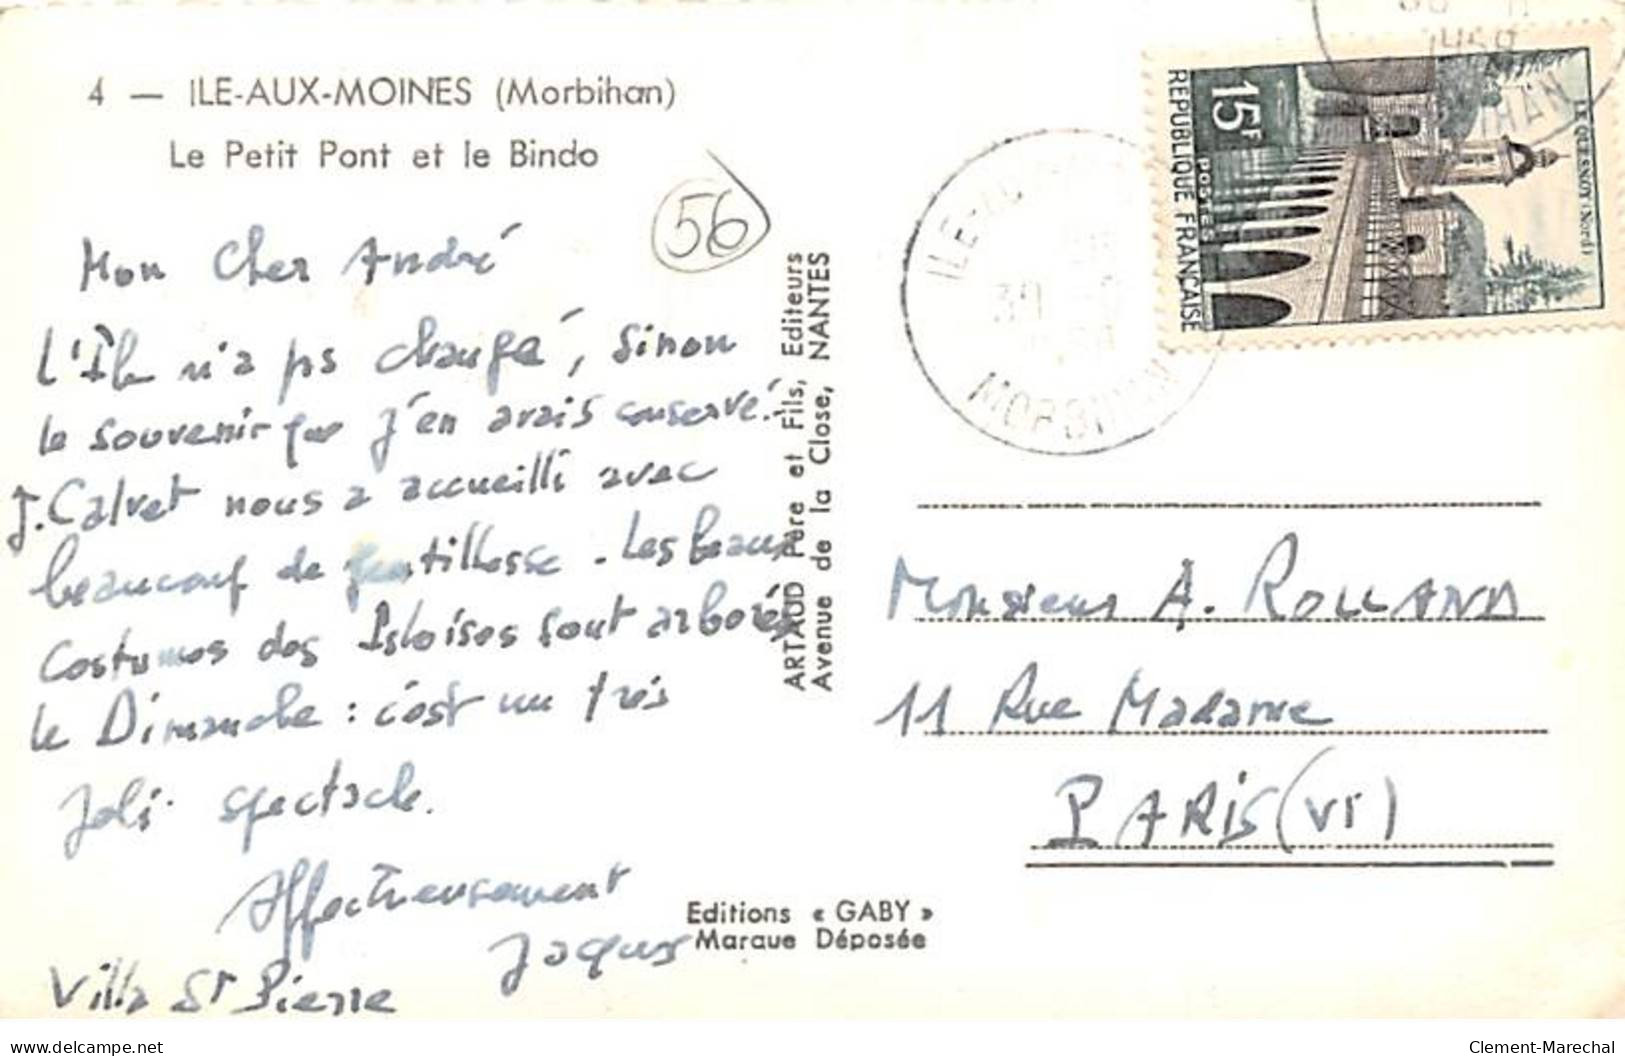 4 — ILE-AUX-MOINES (Morbihan)
Le Petit Pont et le Bindo
56
Mon Cher André
L'Ile n'a ps changé, sinon
le souvenir que j'en avais conservé.
J. Calvet nous a accueilli avec
beaucoup de gentillesse. Les beaux
costumes des Isloises sont arborés
le Dimanche : c'est un très
joli spectacle.
Affectueusement
Jaques
Villa St Pierre
ARTAUD Père et Fils, Editeurs
Avenue de la Close, NANTES
Editions « GABY »
Marque Déposée
REPUBLIQUE FRANÇAISE
POSTES
15F
LE QUESNOY (Nord)
MORBIHAN
Monsieur A. ROLLAND
11 Rue Madame
PARIS (VI)
www.delcampe.net
Clement-Marechal